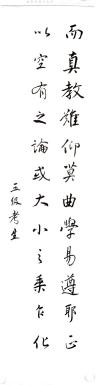 而真教難仰莫曲學易遵耶正
以空有之論或大小之乘乍化
五級考生